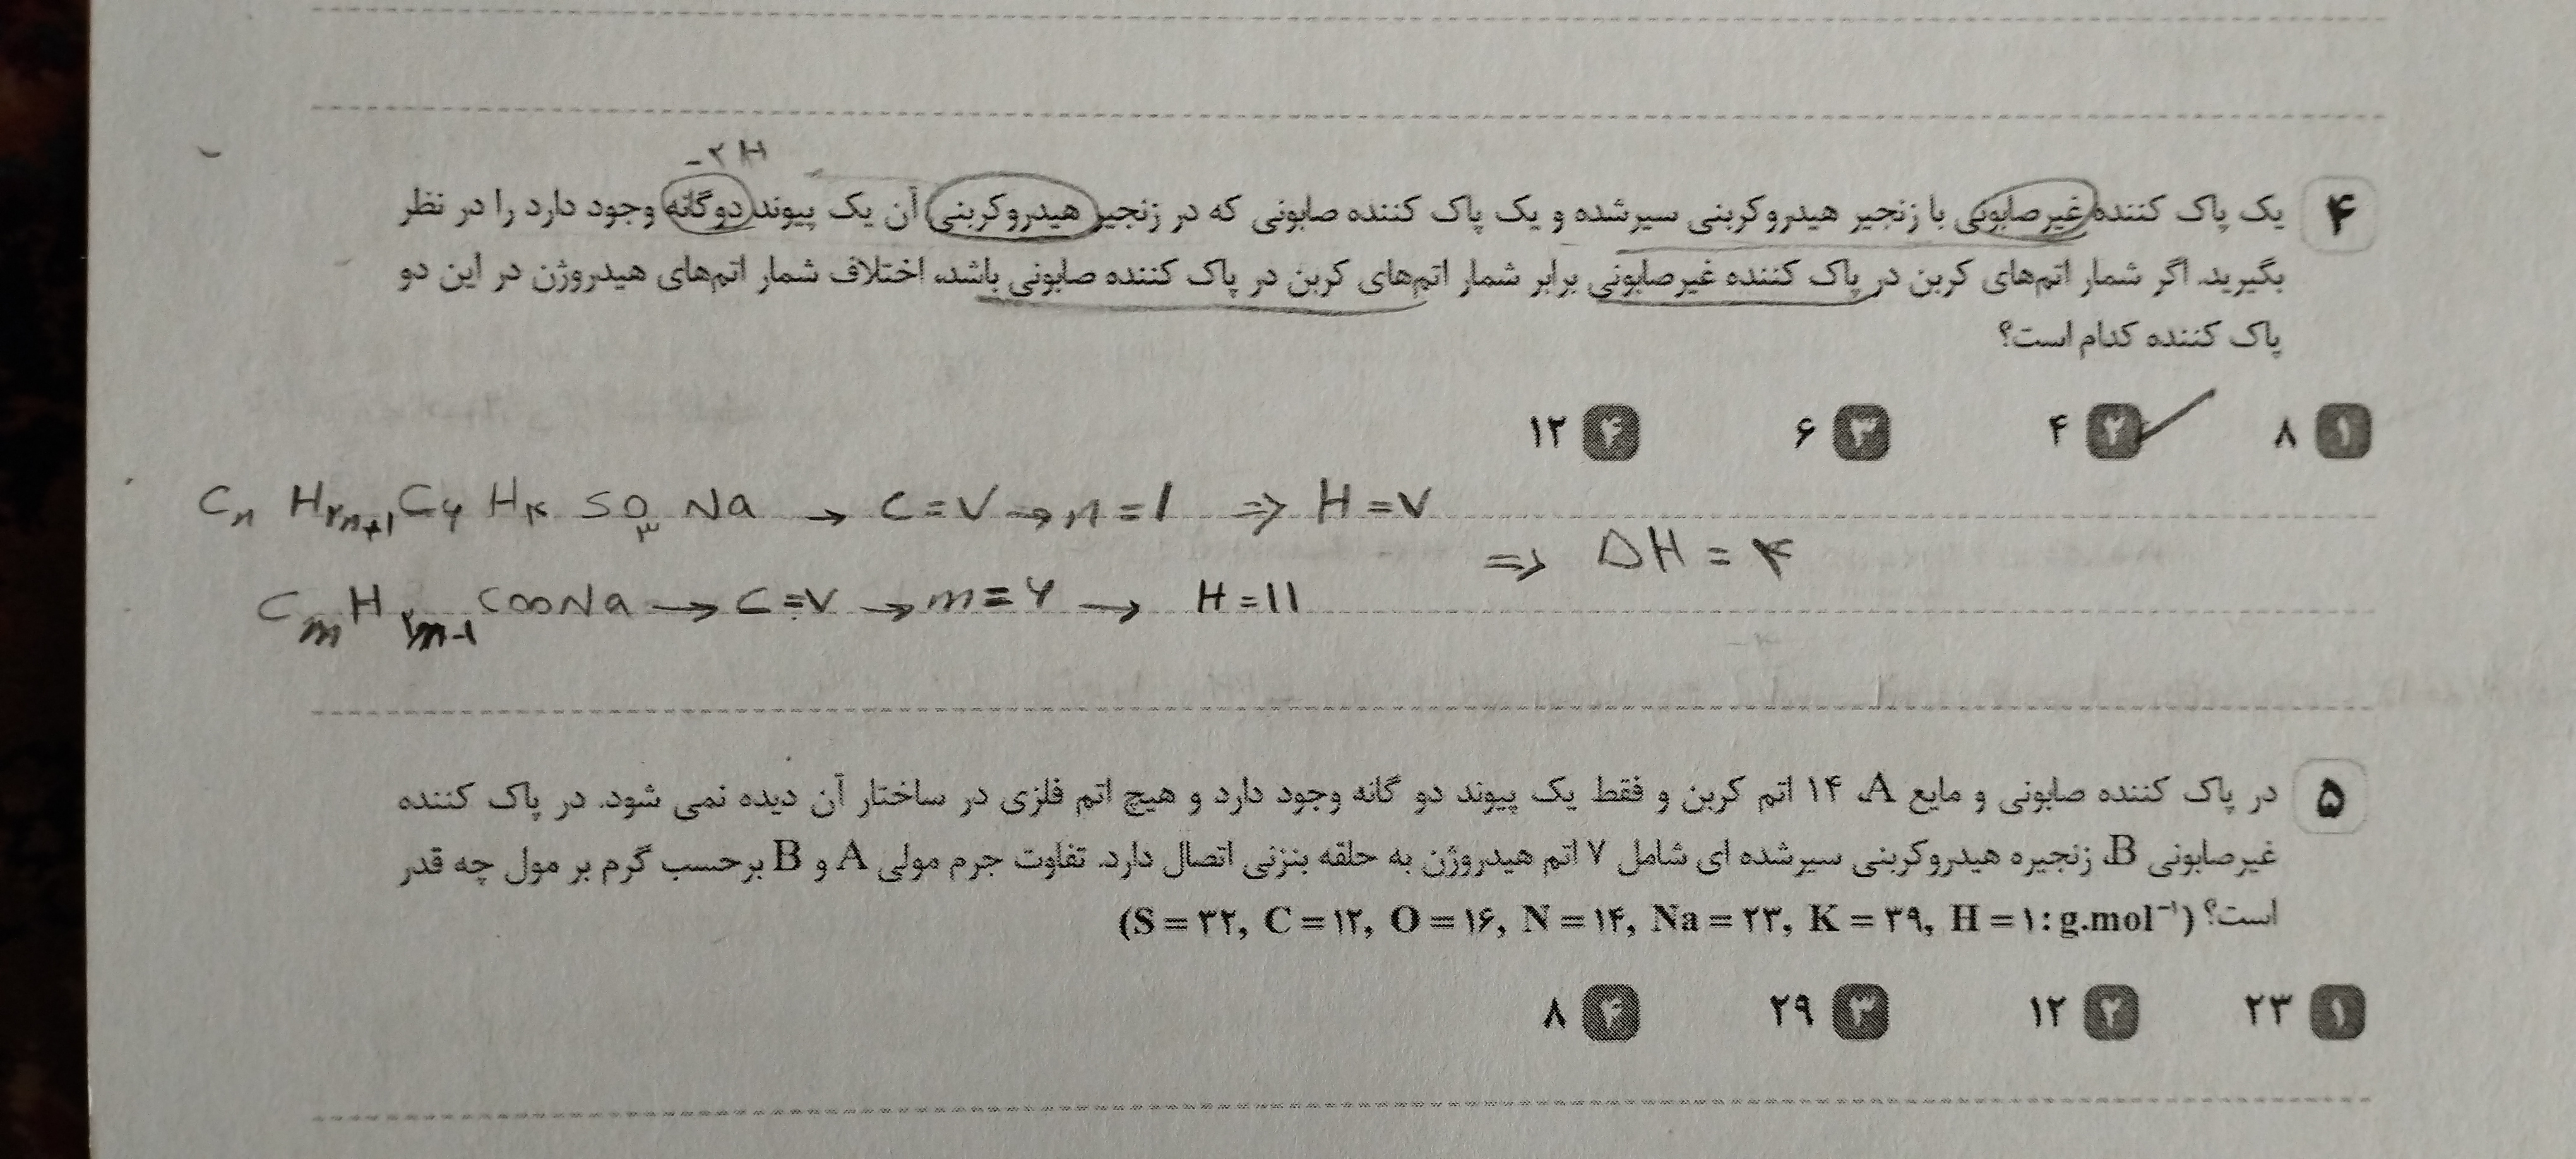 -۲H
۴ یک پاک کننده غیرصابونی با زنجیر هیدروکربنی سیرشده و یک پاک کننده صابونی که در زنجیر هیدروکربنی آن یک پیوند دوگانه وجود دارد را در نظر
بگیرید. اگر شمار اتم‌های کربن در پاک کننده غیرصابونی برابر شمار اتم‌های کربن در پاک کننده صابونی باشد، اختلاف شمار اتم‌های هیدروژن در این دو
پاک کننده کدام است؟
۱ ۸ ۲ ۴ ۳ ۶ ۴ ۱۲
CnH۲n+۱C۶H۴SO۳Na → C=۷ → n=۱ ⇒ H=۷
⇒ ΔH=۴
CmH۲m-۱COONa → C=۷ → m=۶ → H=۱۱
۵ در پاک کننده صابونی و مایع A، ۱۴ اتم کربن و فقط یک پیوند دو گانه وجود دارد و هیچ اتم فلزی در ساختار آن دیده نمی شود. در پاک کننده
غیرصابونی B، زنجیره هیدروکربنی سیرشده ای شامل ۷ اتم هیدروژن به حلقه بنزنی اتصال دارد. تفاوت جرم مولی A و B برحسب گرم بر مول چه قدر
است؟ (S = ۳۲, C = ۱۲, O = ۱۶, N = ۱۴, Na = ۲۳, K = ۳۹, H = ۱ : g.mol⁻¹)
۱ ۲۳ ۲ ۱۲ ۳ ۲۹ ۴ ۸